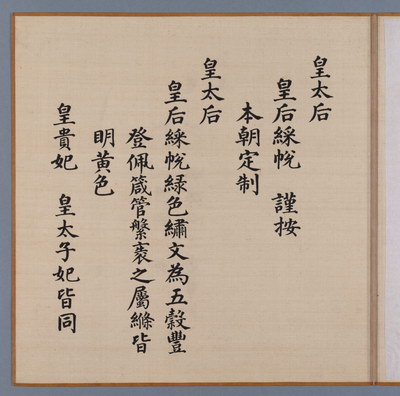 皇太后
皇后綵帨　謹按
本朝定制
皇太后
皇后綵帨綠色繡文為五穀豐
登佩箴管縏袠之屬絛皆
明黃色
皇貴妃　皇太子妃皆同